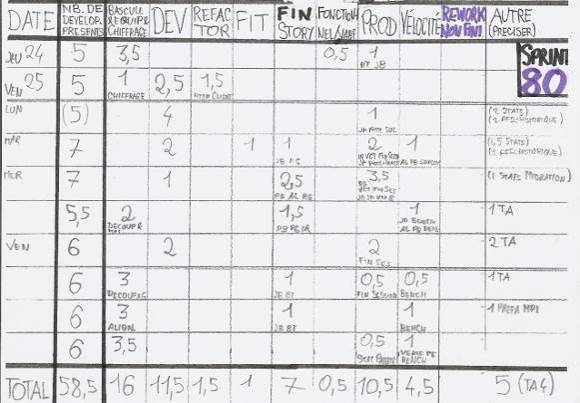 DATE NB. DE DEVELOP. PRESENTS BASCULE &EQUIPE CHIFFRAGE DEV REFACTOR FIT FIN STORY FONCTIONNEL PROD VÉLOCITÉ REWORK NON FINI AUTRE (PRECISER)
JEU 24 5 3,5 0,5 1
ET JB
SPRINT 80
VEN 25 5 1 2,5 1,5
CHIFFRAGE
LUN (5) 4 1 (2 STATS)
MAR 7 2 1 1 2 1 (1,5 STATS)
MER 7 1 2,5 3,5 (1 STATS MIGRATION)
5,5 2 1,5 1 1 TA
DECOUP &
VEN 6 2 2 2 TA
FIN SES
6 3 1 0,5 0,5 1 TA
DECOUPAG JB BT FIN SESSION BENCH
6 3 1 1 1 PREPA MPI
ALIGN. JB BT BENCH
6 3,5 0,5 1
BENCH
TOTAL 58,5 16 11,5 1,5 1 7 0,5 10,5 4,5 5 (TA4)